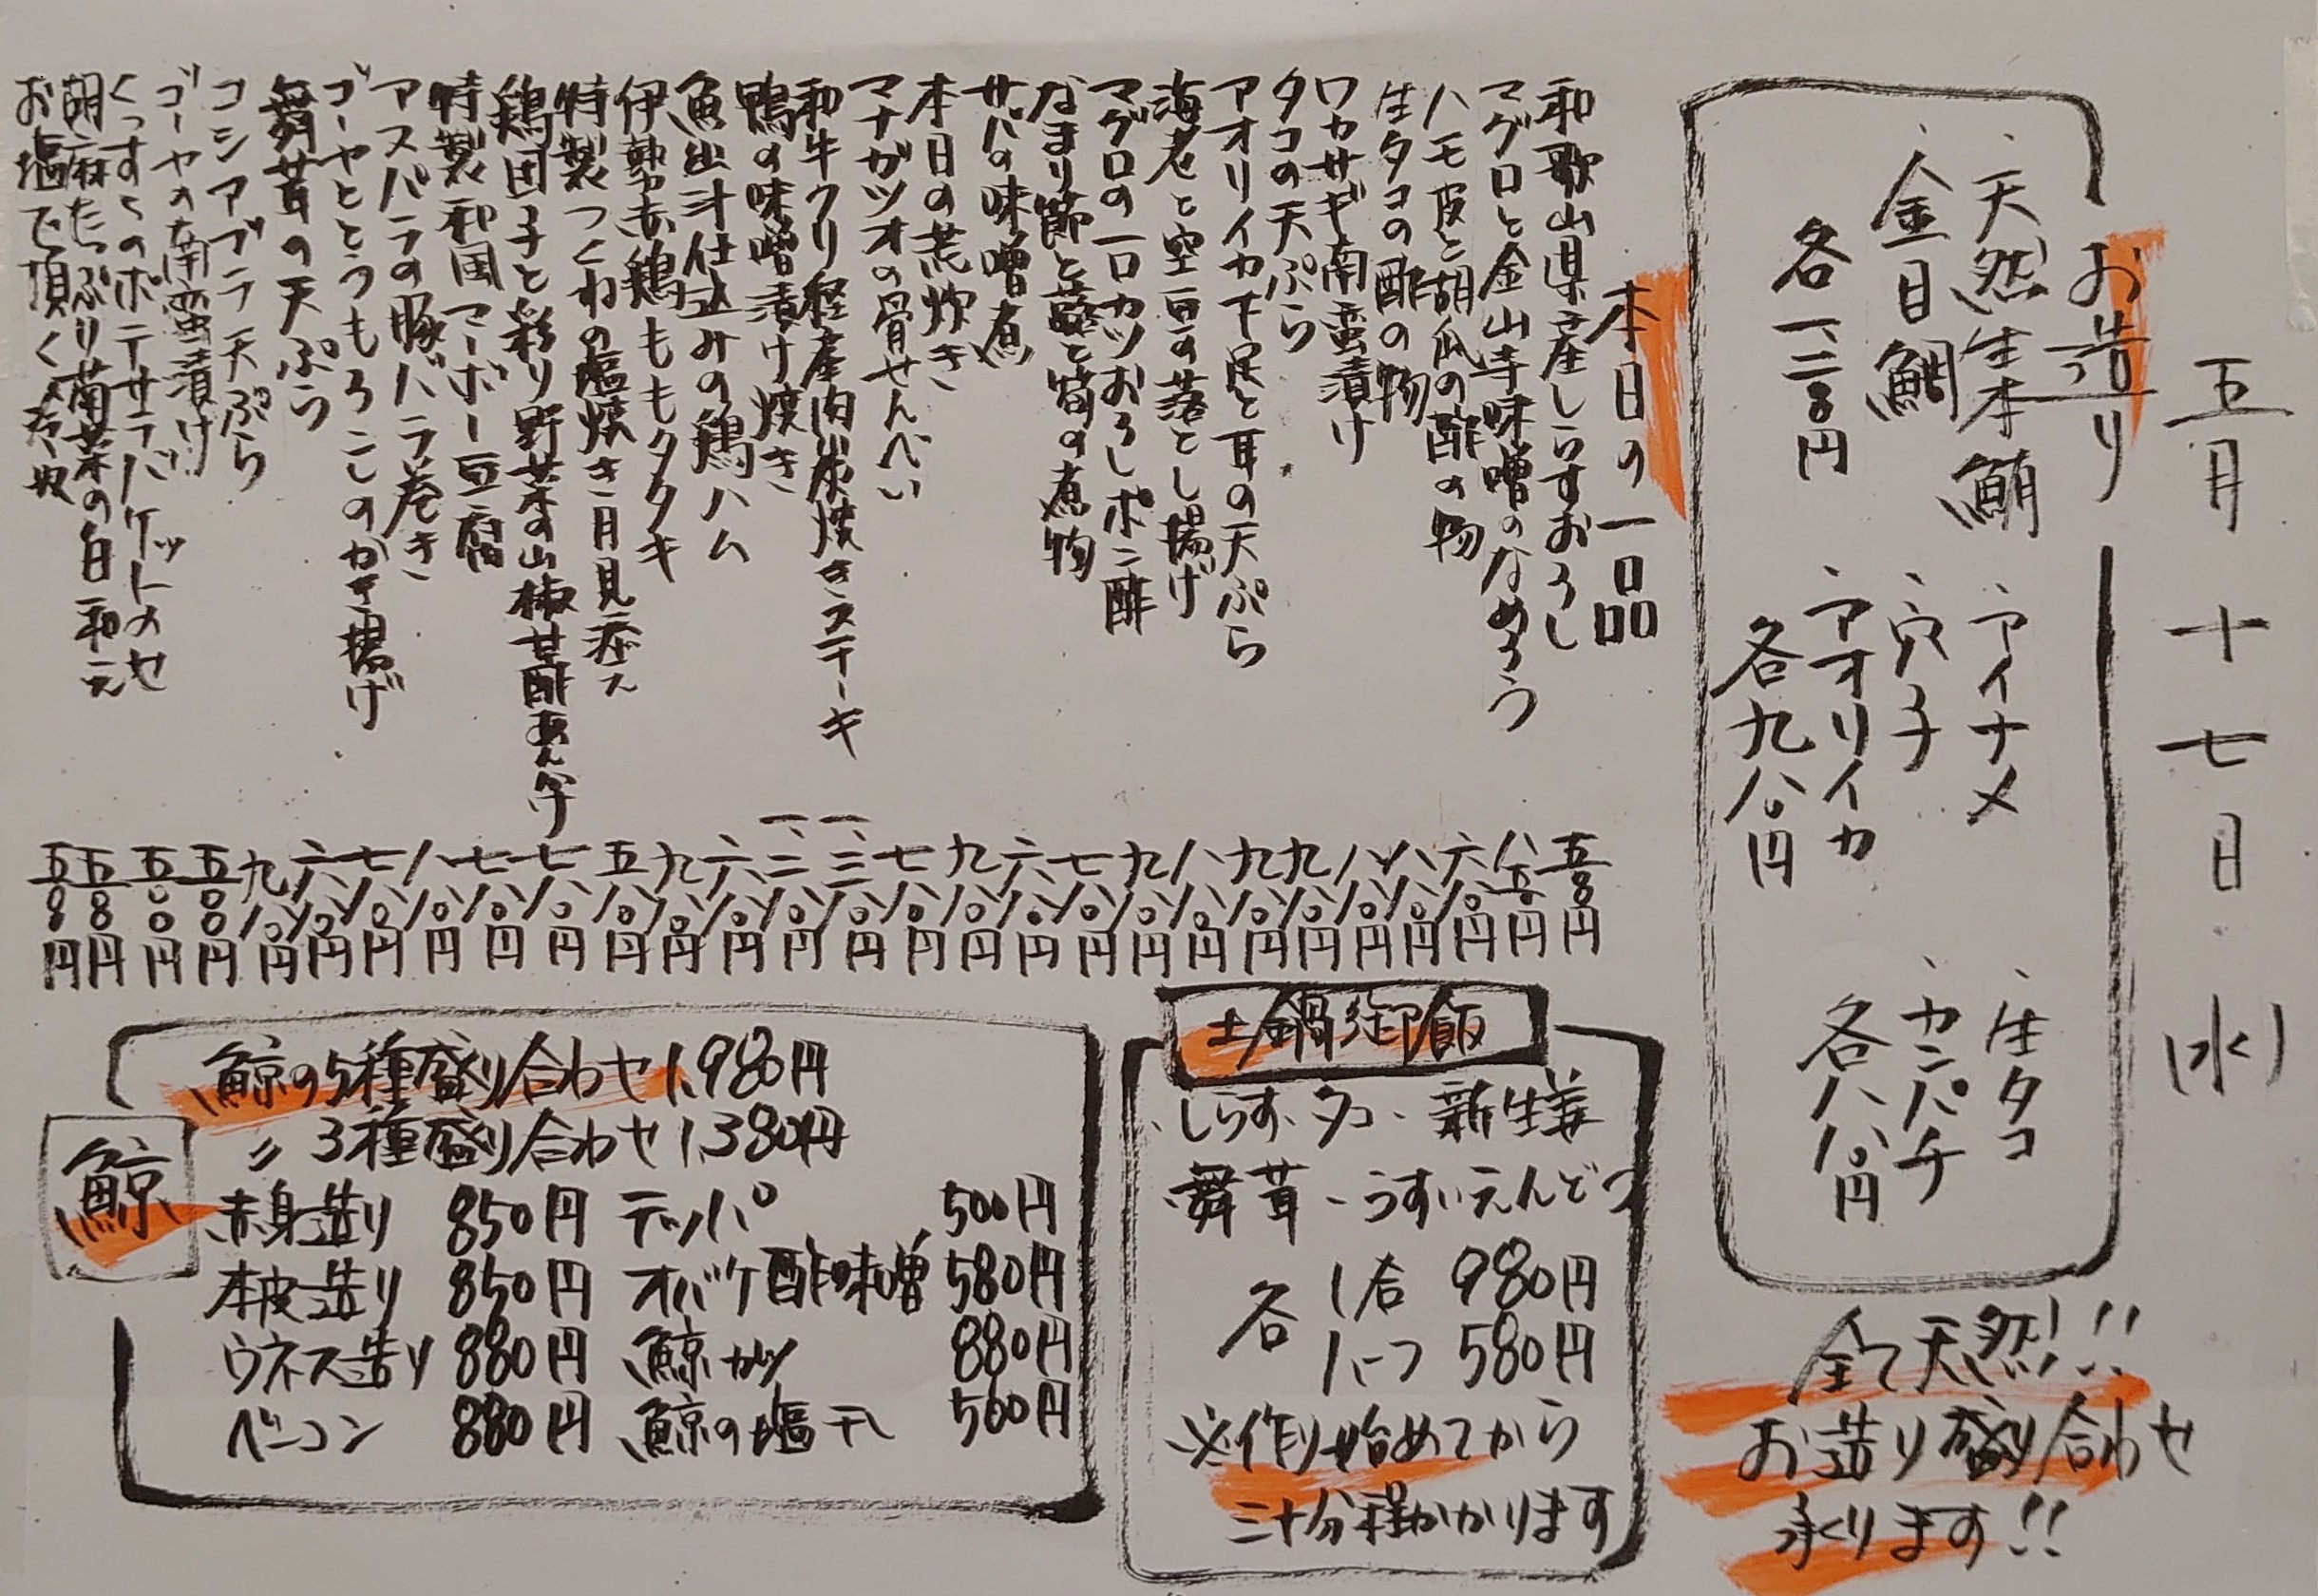 五月十七日(水)
お造り
、天然生本鮪
、金目鯛
各一、二八〇円
、アイナメ
、穴子
、アオリイカ
各九八〇円
、生タコ
、カンパチ
各八八〇円
全て天然!!
お造り盛り合わせ
承ります!!
本日の一品
和歌山県産しらすおろし 五〇〇円
マグロと金山寺味噌のなめろう 八五〇円
ハモ皮と胡瓜の酢の物 六八〇円
生タコの酢の物 八八〇円
ワカサギ南蛮漬け 八八〇円
タコの天ぷら 九八〇円
アオリイカ下足と耳の天ぷら 九八〇円
海老と空豆の落とし揚げ 八八〇円
マグロの一口カツおろしポン酢 九八〇円
なまり節と蕗と筍の煮物 七八〇円
サバの味噌煮 六八〇円
本日の荒炊き 九八〇円
マナガツオの骨せんべい 七八〇円
和牛クリ経産肉炭焼きステーキ 一、三八〇円
鴨の味噌漬け焼き 一、二八〇円
魚出汁仕込みの鶏ハム 六八〇円
伊勢赤鶏ももタタキ 九八〇円
特製つくねの塩焼き月見添え 五八〇円
鶏団子と彩り野菜の山椒甘酢あんかけ 七八〇円
特製和風マーボー豆腐 七八〇円
アスパラの豚バラ巻き 八八〇円
ゴーヤととうもろこしのかき揚げ 七八〇円
舞茸の天ぷら 六八〇円
コシアブラ天ぷら 九八〇円
ゴーヤの南蛮漬け 五〇〇円
のポテサラバケットのせ 五〇〇円
胡麻たっぷり菊菜の白和え 五〇〇円
お塩で頂く冷奴 五〇〇円
土鍋御飯
、しらす、タコ、新生姜
舞茸、うすいえんどう
各 1合 980円
1/2つ 580円
※作り始めてから
三十分程かかります
鯨
鯨の5種盛り合わせ 1,980円
〃 3種盛り合わせ 1,380円
赤身造り 850円 テッパ 500円
本皮造り 850円 オバケ酢味噌 580円
ウネス造り 880円 鯨カツ 880円
ベーコン 880円 鯨の塩干し 500円